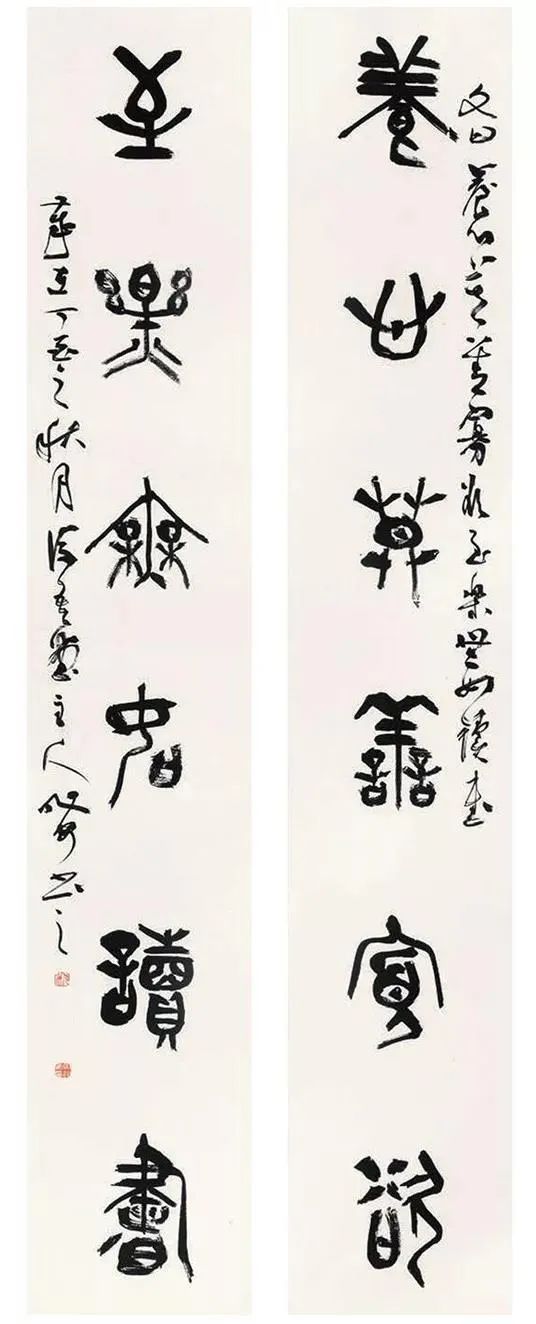 文曰養心莫善寡欲至樂無如讀書
養心莫善寡欲
至樂無如讀書
歲在丁亥之秋月 主人 書之